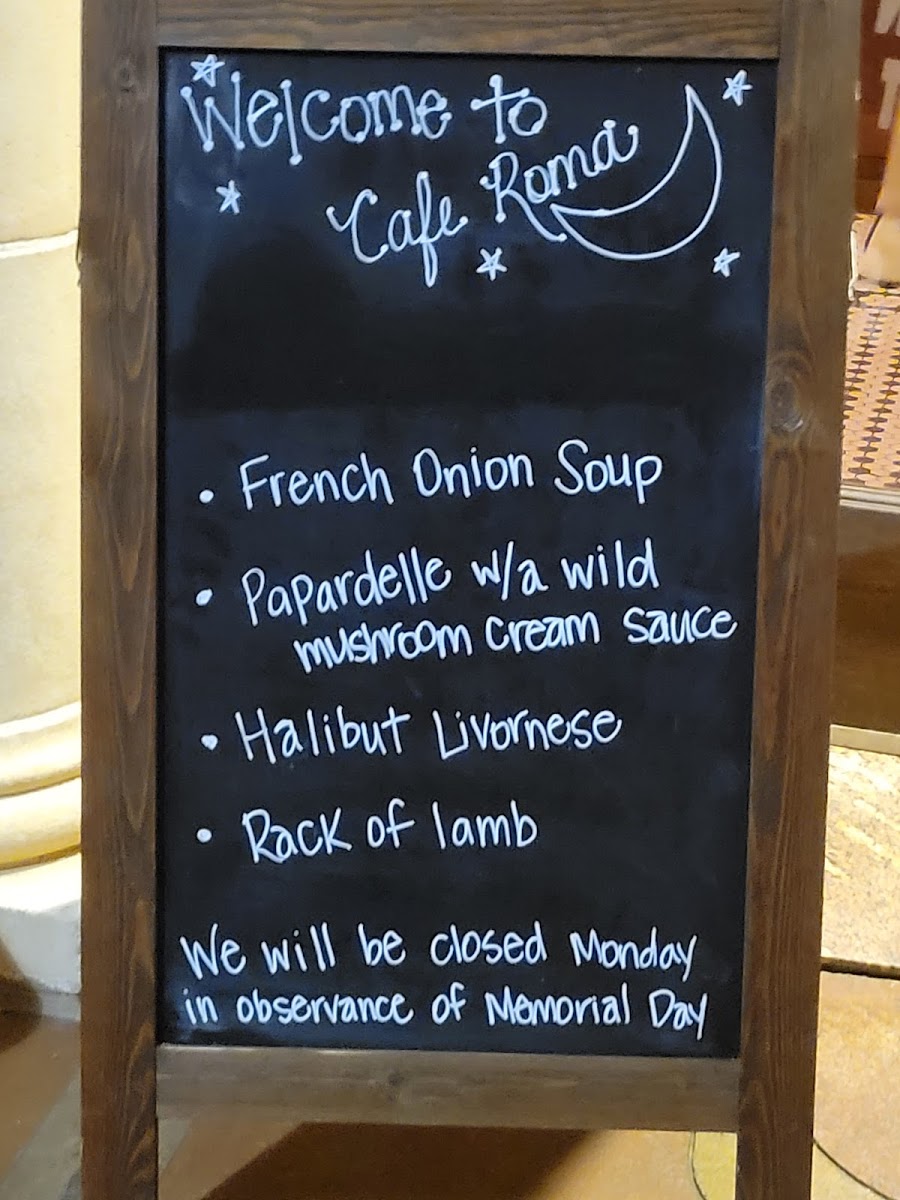 Welcome to
Cafe Roma
• French Onion Soup
• Papardelle w/a wild
mushroom cream sauce
• Halibut Livornese
• Rack of lamb
We will be closed Monday
in observance of Memorial Day